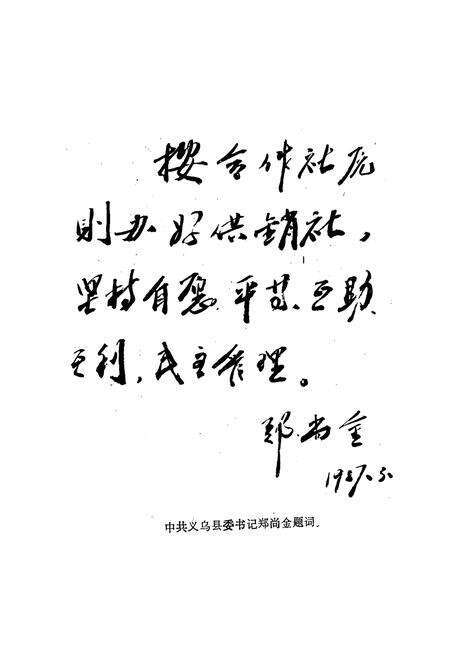 按合作社原
则办好供销社，
坚持自愿、平等、互助、
互利，民主管理。
郑尚金
1987.5.
中共义乌县委书记郑尚金题词。